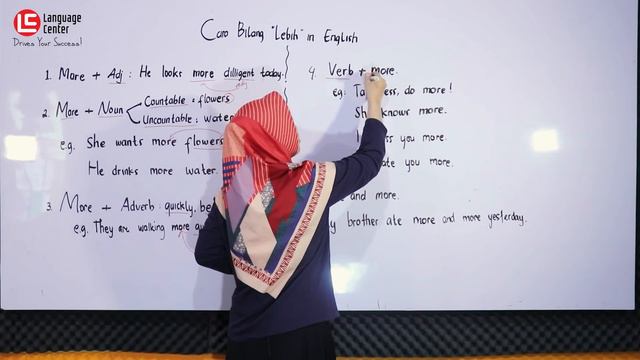 LC Language Center
Drives Your Success!
Cara Bilang "Lebih" in English
1. More + Adj : He looks more dilligent today.
2. More + Noun
Countable : flowers
Uncountable : water
e.g. She wants more flowers
He drinks more water.
3. More + Adverb : quickly,
e.g. They are walking more
4. Verb + more.
eg: do more!
She knows more.
you more.
you more.
and more.
brother ate more and more yesterday.